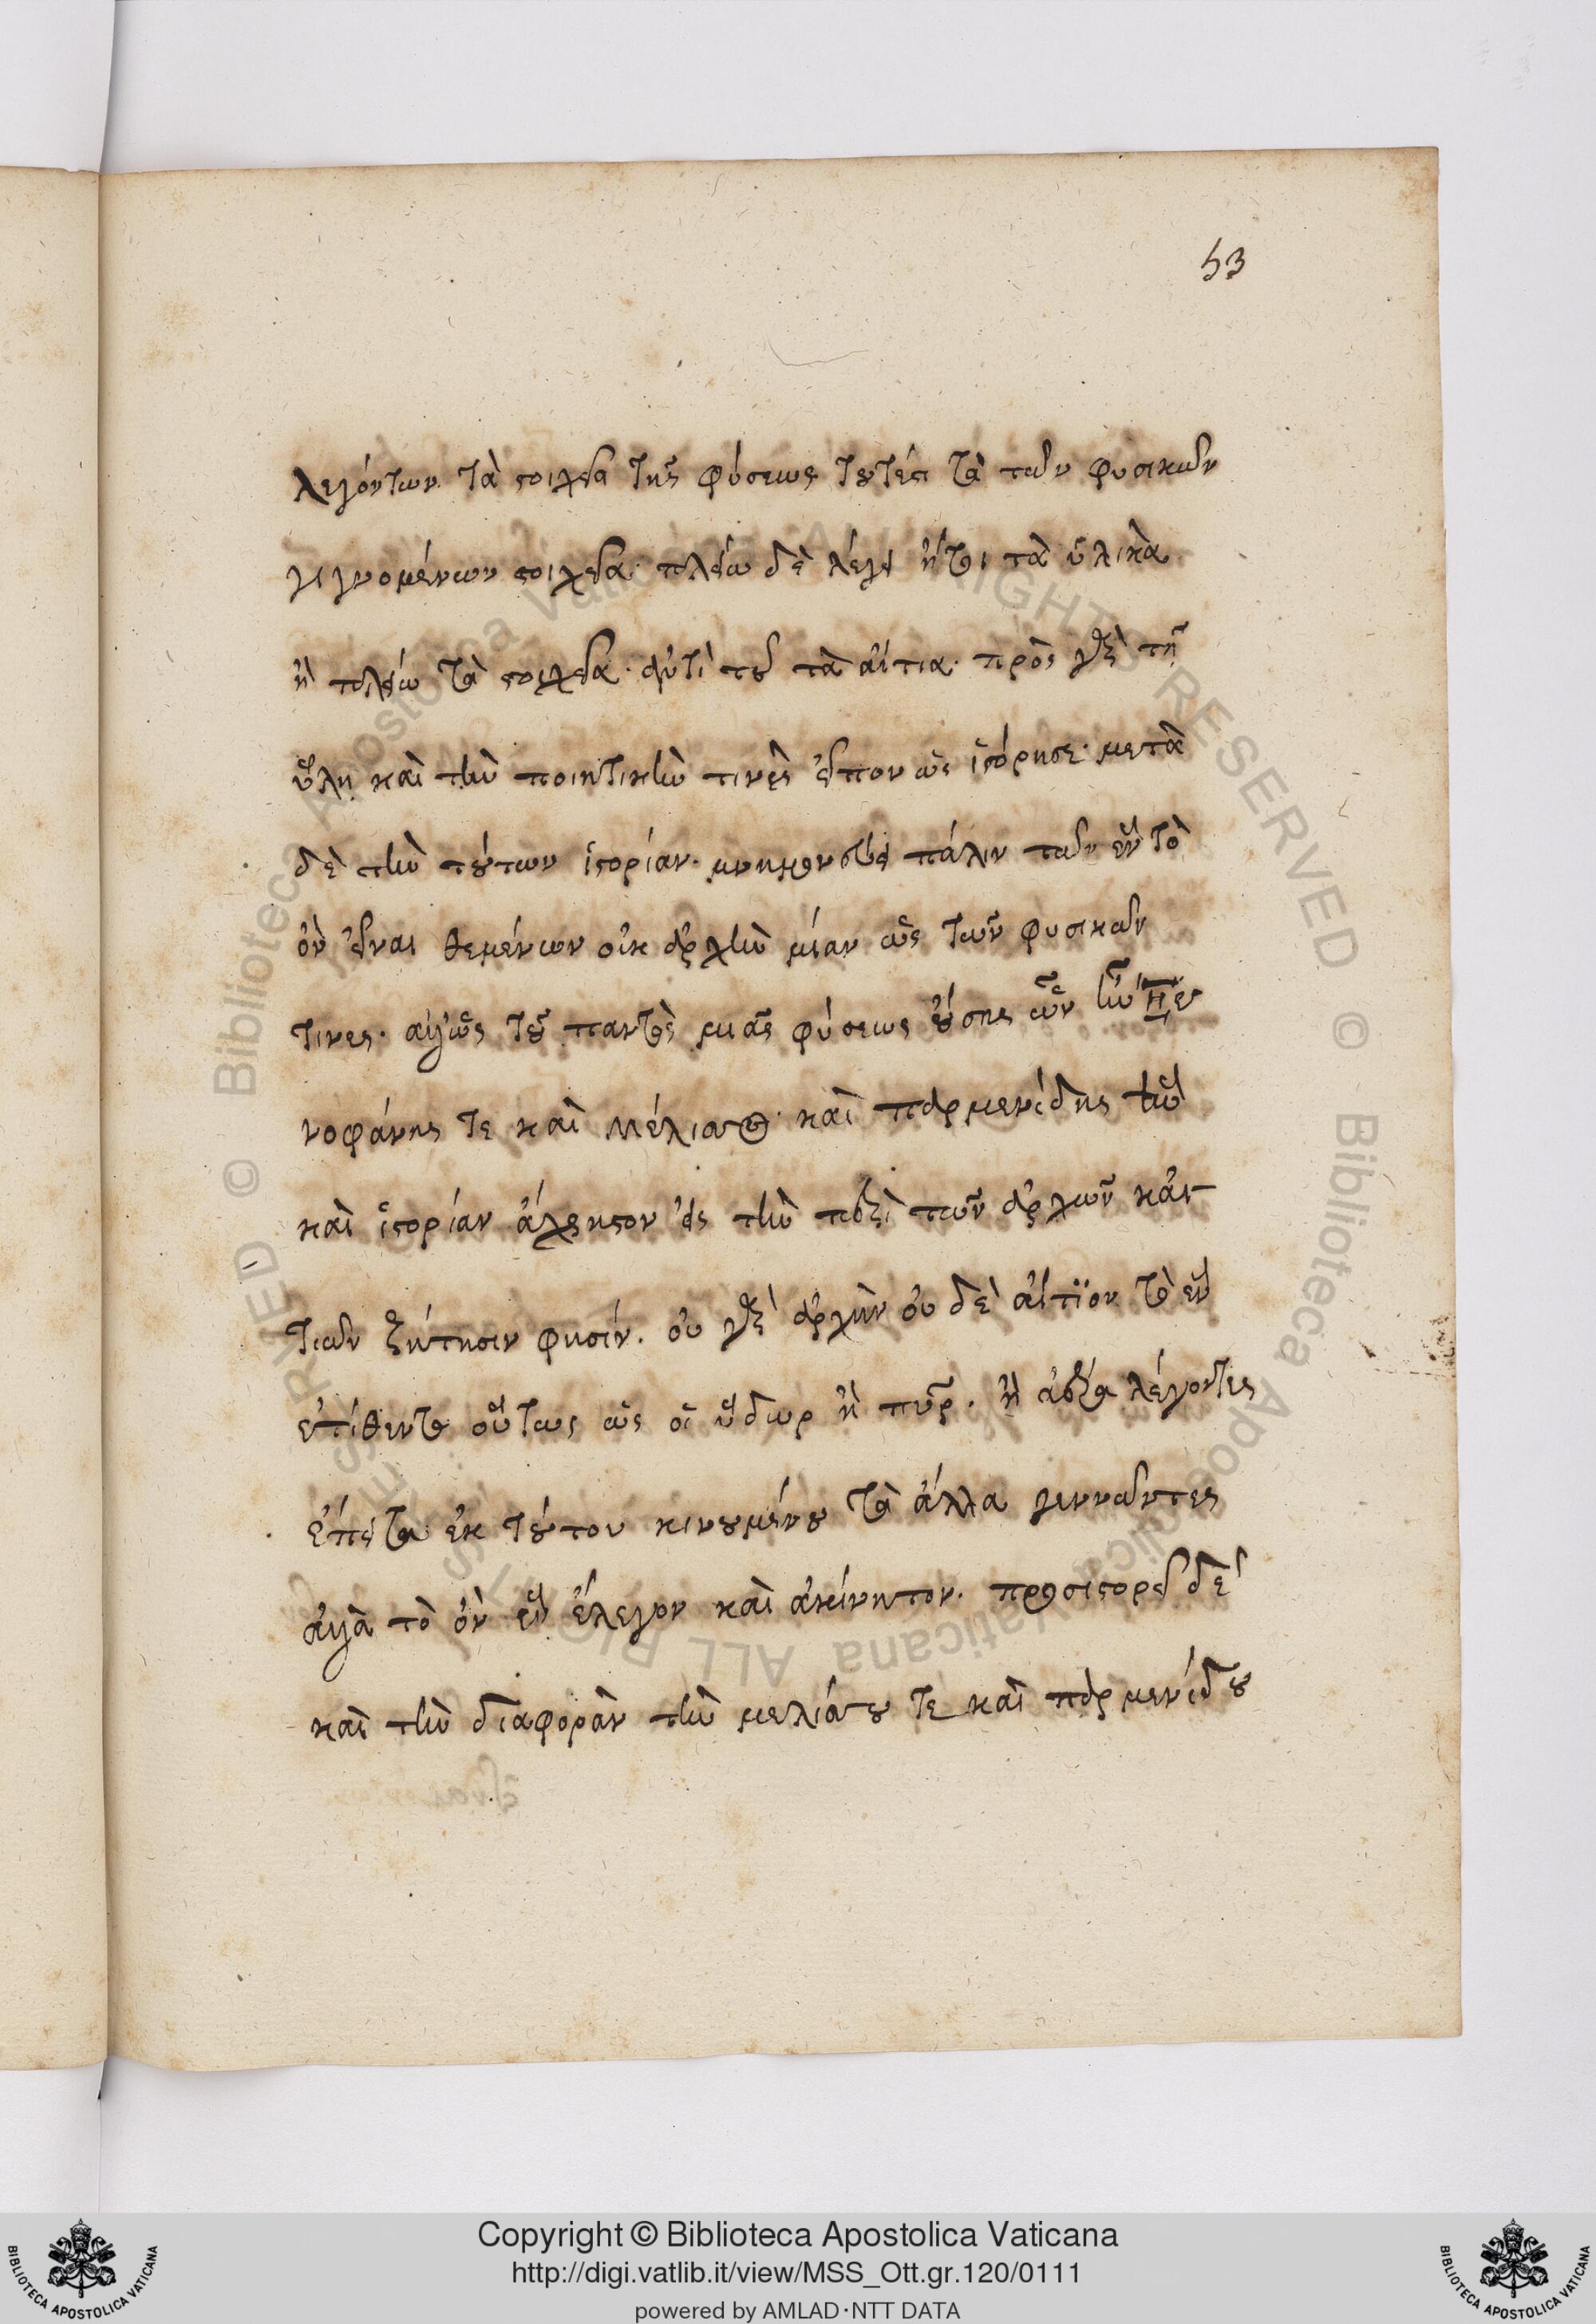 53
λεγόντων τὰ στοιχεῖα τῆς φύσεως τουτέστι τὰ τῶν φυσικῶν
γιγνομένων στοιχεῖα· πλείω δὲ λέγει ἤτοι τὰ ὑλικὰ
ἢ πλείω τὰ στοιχεῖα· ἀντὶ τοῦ τὰ αἴτια· πρὸς γὰρ τῆ
ὕλη καὶ τὴν ποιητικὴν τινὲς εἶπον ὡς ἱστόρησε· μετὰ
δὲ τὴν τούτων ἱστορίαν· μνημονεύει πάλιν τῶν ἓν τὸ
ὂν εἶναι θεμένων οὐκ ἀρχὴν μίαν ὡς τῶν φυσικῶν
τινες· ἀλλ' ὡς τοῦ παντὸς μιᾶς φύσεως οὔσης ὧν ἦν Ξε
νοφάνης τε καὶ Μέλισσος καὶ παρμενίδης ὧν
καὶ ἱστορίαν ἄχρηστον εἰς τὴν περὶ τῶν ἀρχῶν καὶ αἰ
τιῶν ζήτησιν φησίν. οὐ γὰρ ἀρχὴν οὐδὲ αἴτϊον τὸ ἓν
ἐτίθεντο οὕτως ὡς οἱ ὕδωρ ἢ πῦρ. ἢ ἀέρα λέγοντες
ἔπειτα ἐκ τούτου κινουμένου τὰ ἄλλα γεννῶντες
ἀλλὰ τὸ ὂν ἓν ἔλεγον καὶ ἀκίνητον. προσιστορεῖ δὲ
καὶ τὴν διαφορὰν τὴν μελίσσου τε καὶ παρμενίδου
Copyright © Biblioteca Apostolica Vaticana
http://digi.vatlib.it/view/MSS_Ott.gr.120/0111
powered by AMLAD·NTT DATA